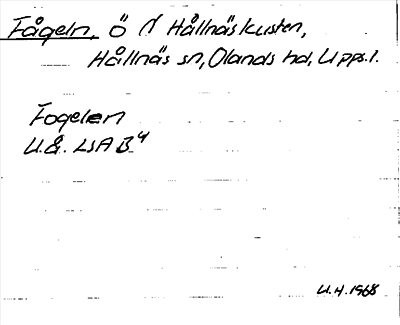 Fågeln, ö i Hållnäskusten,
Hållnäs sn, Olands hd, Upps. l.
Fogelen
U.å. LSA B 4
U.H. 1968